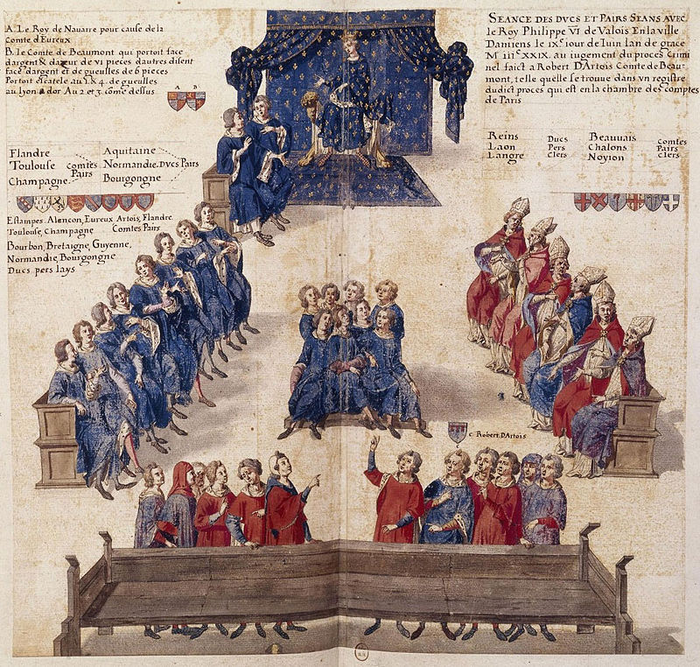 A. Le Roy de Nauarre pour cause de la
Comte d'Eureux
B. le Comte de Beaumont qui portoit face
dargent & dazur de VI pieces dautres disent
face dargent et de gueulles de 6 pieces
Portoit escartele au 1 & 4. de gueulles
au lyon dor Au 2 et 3. come dessus.
A B
SEANCE DES DVCS ET PAIRS SEANS AVEC
le Roy Philippe VI de Valois En la ville
Damiens le IXe iour de Iuin lan de grace
M IIIc XXIX. au iugement du proces Crimi
nel faict a Robert D'Artois Comte de Beau-
mont, telle quelle se trouue dans vn registre
dudict proces qui est en la chambre des comptes
de Paris
Flandre
Toulouse
Champagne
Comtes
Pairs
Aquitaine
Normandie
Bourgongne
Ducs Pairs
Reins
Laon
Langre
Ducs
Pers
Clers
Beauuais
Chalons
Noyion
Comtes
Pairs
Clers
Estampes, Alencon, Eureux Artois, Flandre
Toulouse, Champagne Comtes Pairs
Bourbon, Bretaigne, Guyenne,
Normandie, Bourgongne
Ducs pers lays
C Robert D'Artois